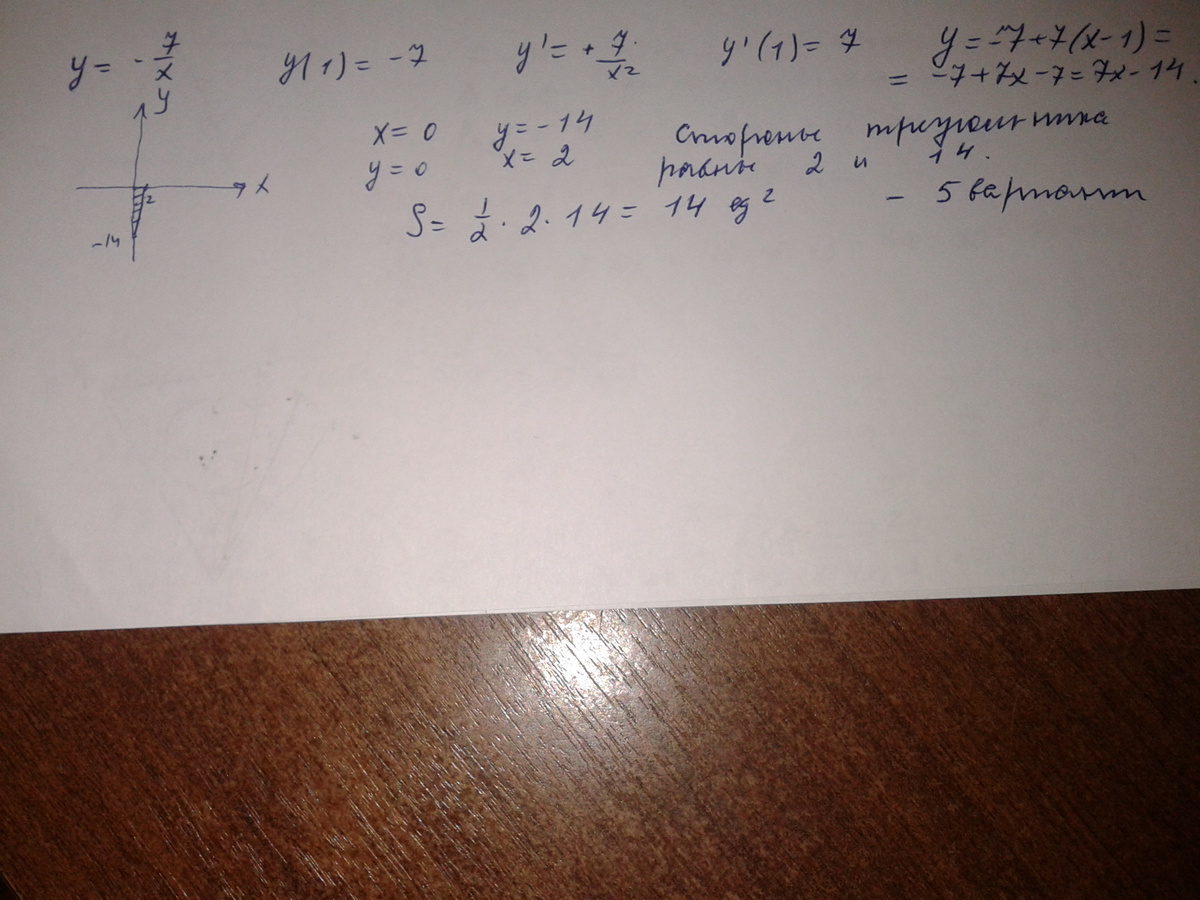 y = - 7/x   y(1) = -7   y' = + 7/x²   y'(1) = 7   y = -7+7(x-1) =
= -7+7x-7 = 7x-14.
y
x = 0   y = -14   Стороны треугольника
y = 0   x = 2   равны 2 и 14.
x
2
-14
S = 1/2 · 2 · 14 = 14 ед²   - 5 вариант